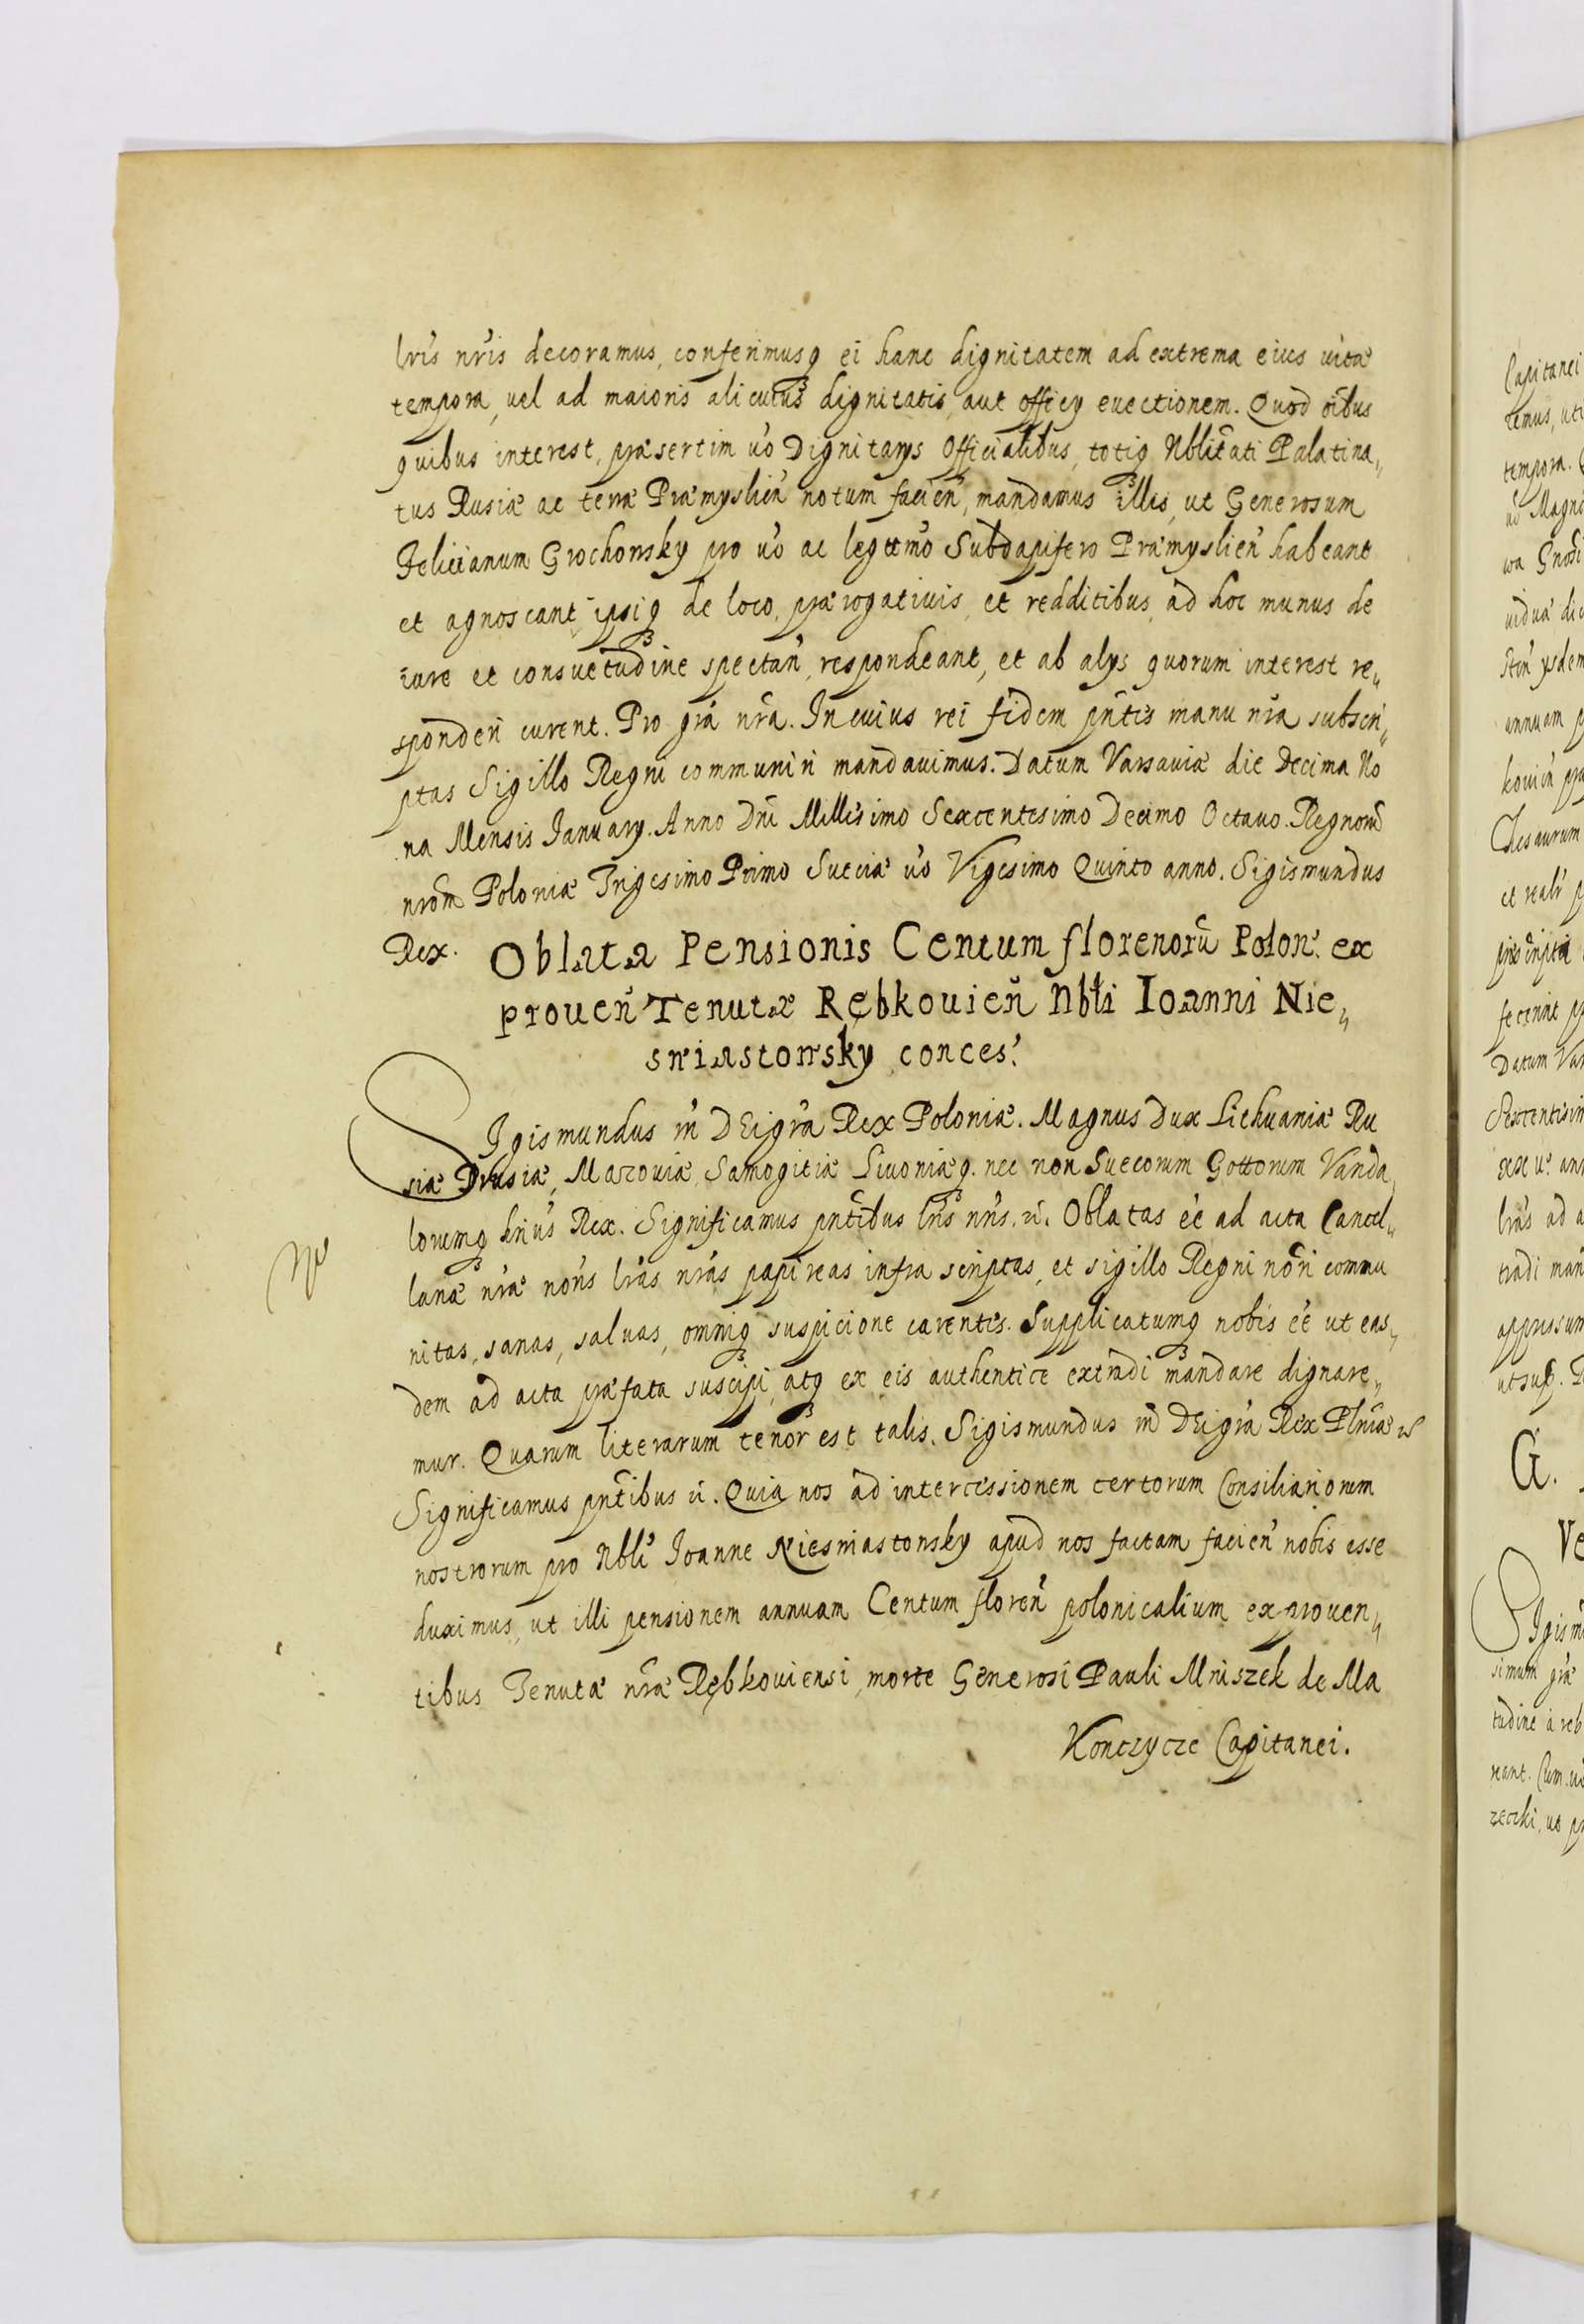 lr̃is nr̃is decoramus, conferimusq3 ei hanc dignitatem ad extrema eius uitæ
tempora, uel ad maioris alicuius dignitatis, aut officy euectionem. Quod oĩbus
quibus interest, præsertim uõ Dignitarys Officialibus, totiq3 Nblitati Palatina„
tus Rusiæ ac terræ Præmyslien̄ notum facien̄, mandamus illis, ut Generosum
Felicianum Grochowsky pro uõ ac legitimo Subdapifero Præmyslien̄ habeant
et agnoscant, ipsiq3 de loco, prærogatiuis, et redditibus, ad hoc munus de
iure et consuetudine spectan̄, respondeant, et ab alys quorum interest re„
sponderi curent. Pro grã nrã. In cuius rei fidem pñtes manu nrã subscri„
ptas Sigillo Regni communiri mandauimus. Datum Varsauiæ die Decima No
na Mensis January. Anno Dñi Millesimo Sexcentesimo Decimo Octauo. Regnorũ
nrõm Poloniæ Trigesimo Primo Sueciæ uõ Vigesimo Quinto anno. Sigismundus
Rex.
Oblata Pensionis Centum florenorũ Polon̄. ex
prouen̄ Tenutæ Rębkouien̄ Nbli Ioanni Nie„
sniastowsky conces:
Sigismundus m̃ DEi grã Rex Poloniæ. Magnus Dux Lithuaniæ Ru
siæ Prusiæ, Mazouiæ, Samogitiæ Liuoniæq3. nec non Suecorum Gottorum Vanda„
lorumq3 hrius Rex. Significamus pñtibus lr̃is nr̃is. ũ. Oblatas eẽ ad acta Cancel„
lariæ nræ noñs lrãs nrãs papireas infra scriptas, et sigillo Regni nõri commu
nitas, sanas, saluas, omniq3 suspicione carentes. Supplicatumq3 nobis eẽ ut eas„
dem ad acta præfata suscipi, atq3 ex eis authentice extradi mandare dignare„
mur. Quarum literarum tenor est talis. Sigismundus m̃ DEi grã Rex Plniæ ũ
Significamus pñtibus ũ. Quia nos ad intercessionem certorum Consiliariorum
nostrorum pro Nbli Ioanne Niesniastowsky apud nos factam facien̄ nobis esse
duximus, ut illi pensionem annuam Centum floren̄ polonicalium ex prouen„
tibus Tenutæ nræ Rębkouiensi, morte Generosi Pauli Mniszek de Ma
Konczycze Capitanei.